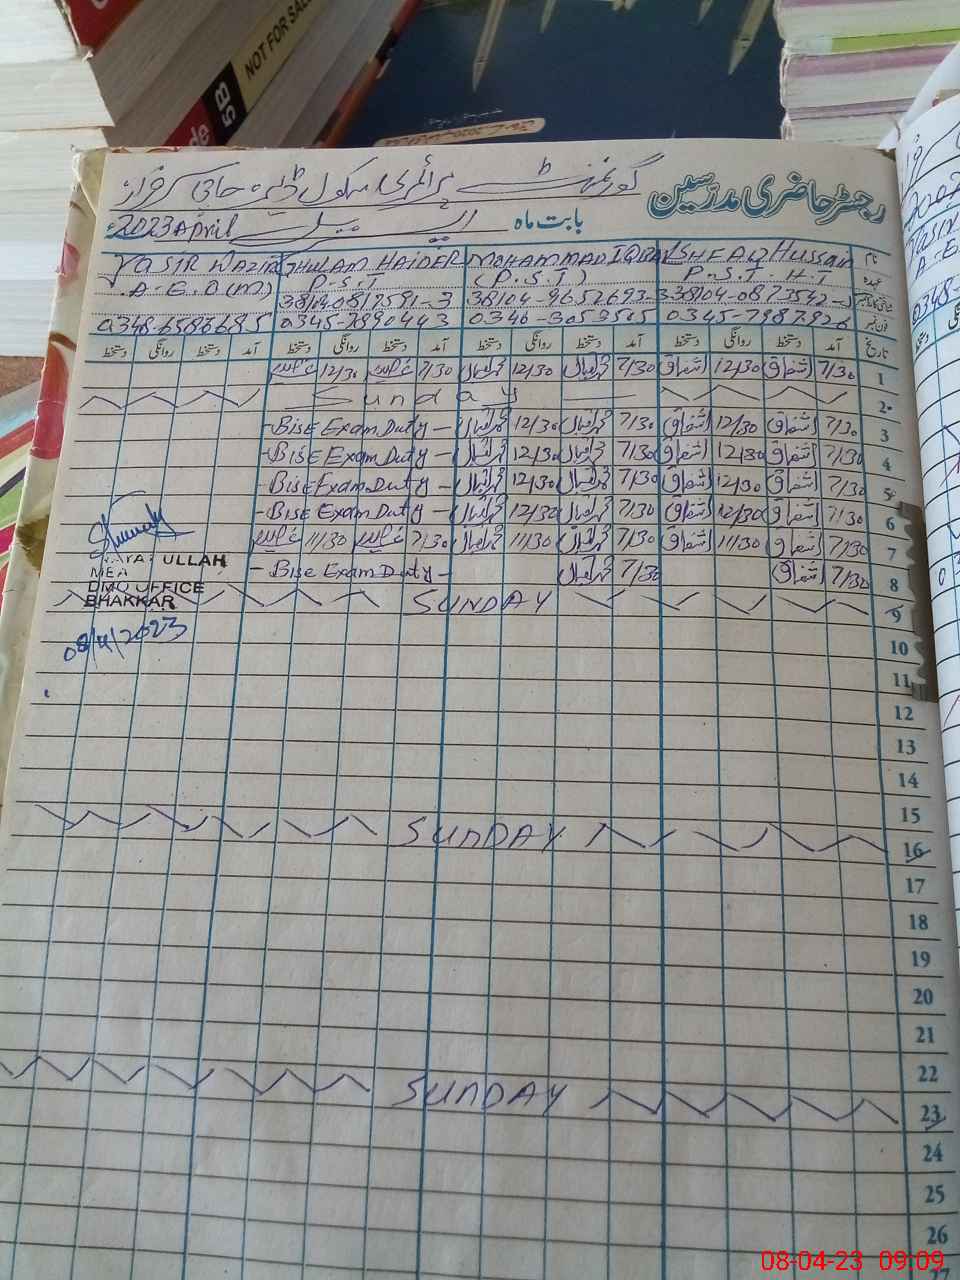 NOT FOR SALE
5B
de
رجسٹر حاضری مدرسین
گورنمنٹ پرائمری سکول ڈیرہ حاجی
بابت ماہ اپریل 2023 April
نام ISHFAQ HUSSAIN MOHAMMAD IQBAL GHULAM HAIDER YASIR WAZIR
عہدہ P.S.T. H.T (P.S.T) P.S.T A.E.O(M)
فون نمبر 0345-7987926 0346-3053565 0345-7890443 0348-6586685
تاریخ آمد دستخط روانگی دستخط آمد دستخط روانگی دستخط آمد دستخط روانگی دستخط آمد دستخط روانگی دستخط
1 7/30 اشفاق 12/30 اشفاق 7/30 محمد اقبال 12/30 محمد اقبال 7/30 غلام 12/30 غلام
2 Sunday
3 7/30 اشفاق 12/30 اشفاق 7/30 محمد اقبال 12/30 محمد اقبال - Bise Exam Duty -
4 7/30 اشفاق 12/30 اشفاق 7/30 محمد اقبال 12/30 محمد اقبال - Bise Exam Duty -
5 7/30 اشفاق 12/30 اشفاق 7/30 محمد اقبال 12/30 محمد اقبال - Bise Exam Duty -
6 7/30 اشفاق 12/30 اشفاق 7/30 محمد اقبال 12/30 محمد اقبال - Bise Exam Duty -
7 7/30 اشفاق 11/30 اشفاق 7/30 محمد اقبال 11/30 محمد اقبال 7/30 غلام 11/30 غلام
8 7/30 اشفاق 7/30 محمد اقبال - Bise Exam Duty -
9 SUNDAY
AYAT ULLAH
MEA
DMO OFFICE
BHAKKAR
08/4/2023
10
11
12
13
14
15
16 SUNDAY
17
18
19
20
21
22
23 SUNDAY
24
25
26
27
08-04-23 09:09